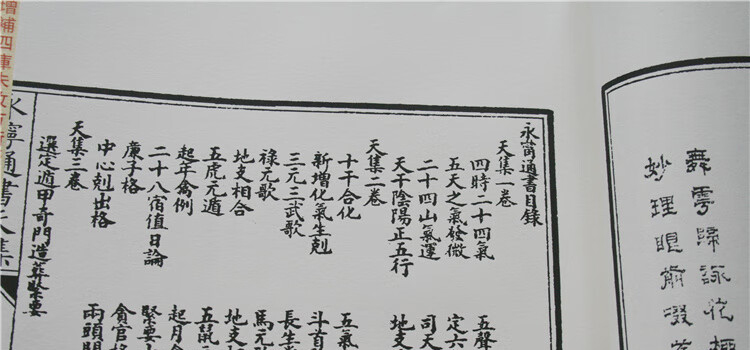 舞雩蹄詠花
妙理眼前
永甯通書目錄
天集一卷
四時二十四氣
五聲
五天之氣發微
定六
二十四山氣運
司天
天干陰陽正五行
地支
天集二卷
十干合化
五氣
新增化氣生剋
斗首
三元三武歌
長生
祿元歌
馬元
地支相合
地支
五虎元遁
五鼠
起年禽例
起月
二十八宿值日論
緊要
廉子格
貪官格
中心剋出格
兩頭
天集三卷
選定遁甲奇門造葬緊要
永寧通書天集
增補四庫未收方